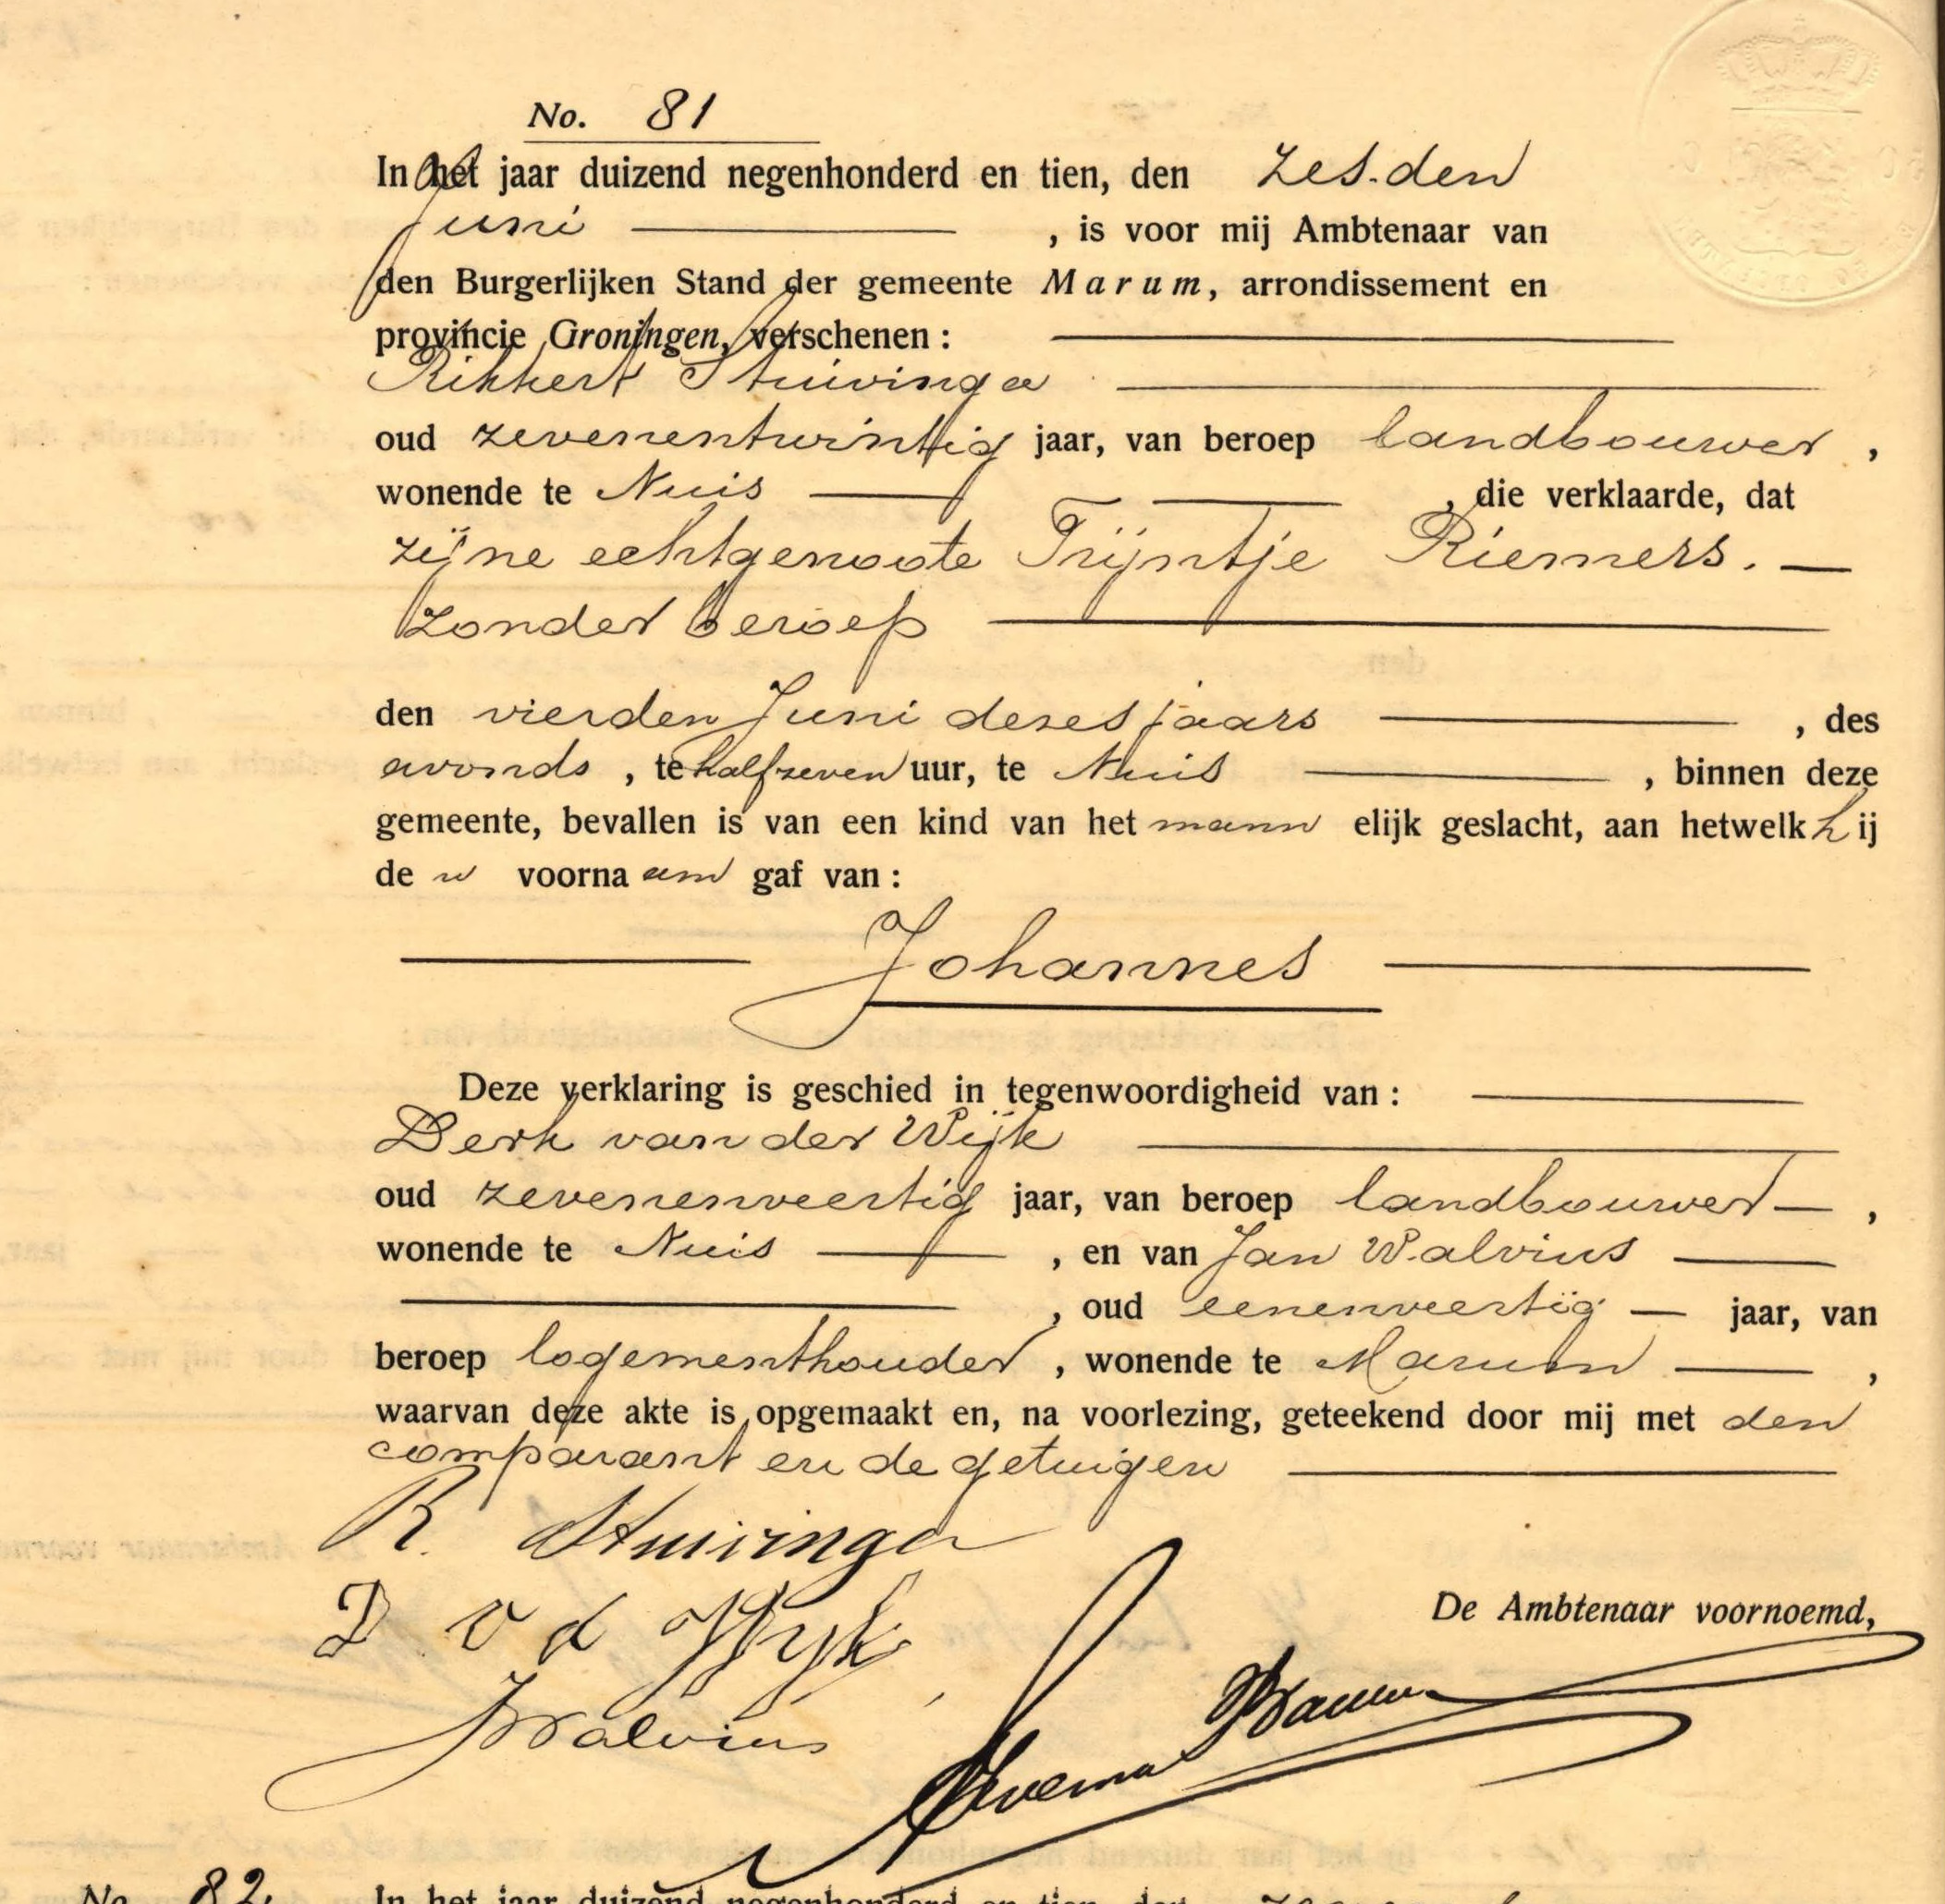 No. 81
In het jaar duizend negenhonderd en tien, den zesden
Juni , is voor mij Ambtenaar van
den Burgerlijken Stand der gemeente Marum, arrondissement en
provincie Groningen, verschenen :
Rikkert Stuivinga
oud zevenentwintig jaar, van beroep landbouwer ,
wonende te Nuis , die verklaarde, dat
zijne echtgenoote Trijntje Riemers.
zonder beroep
den vierden Juni dezes jaars , des
avonds , te half zeven uur, te Nuis , binnen deze
gemeente, bevallen is van een kind van het mann elijk geslacht, aan hetwelk h ij
de n voorna am gaf van :
Johannes
Deze verklaring is geschied in tegenwoordigheid van :
Derk van der Wijk
oud zevenenveertig jaar, van beroep landbouwer ,
wonende te Nuis , en van Jan Walvius
, oud eenenveertig jaar, van
beroep logementhouder , wonende te Marum ,
waarvan deze akte is opgemaakt en, na voorlezing, geteekend door mij met den
comparant en de getuigen
R. Stuivinga
De Ambtenaar voornoemd,
D v d Wyk
J Walvius
No. 82.
In het jaar duizend negenhonderd en tien, den